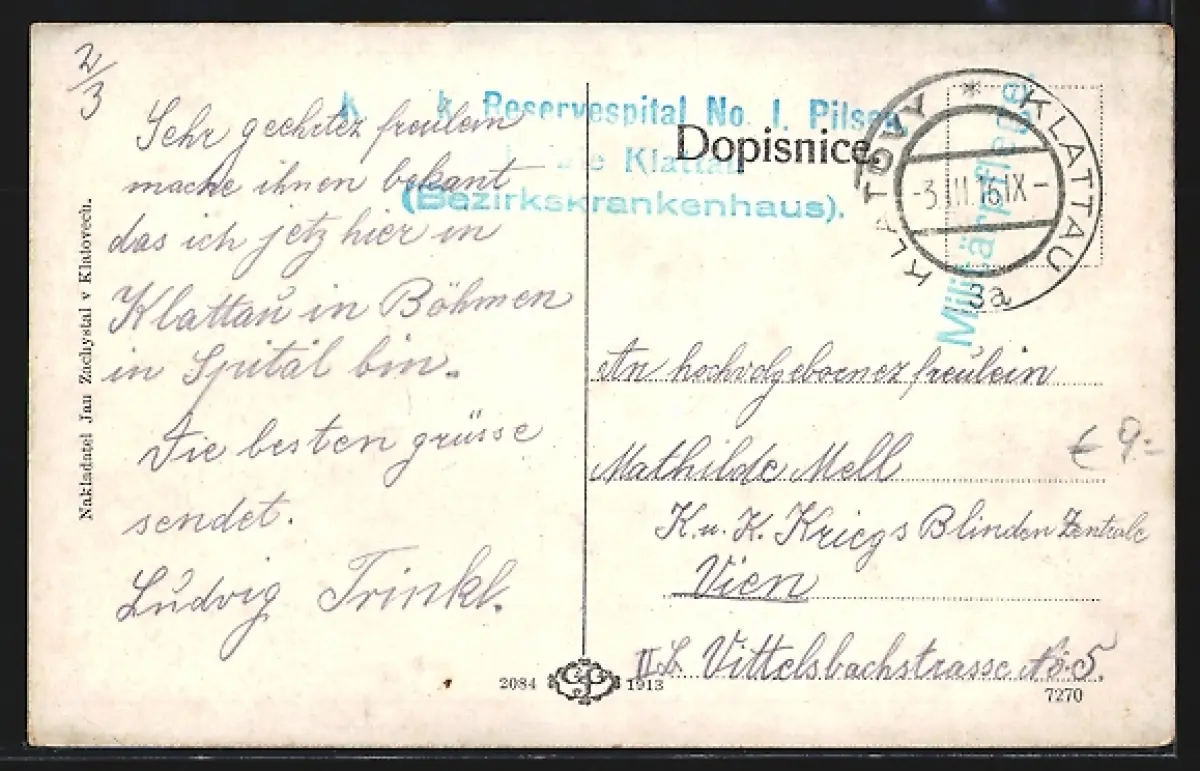 2/3
Sehr geehrtez freulein
mache ihnen bekant
das ich jetz hier in
Klattau in Böhmen
in Spital bin.
Die besten grüsse
sendet.
Ludvig Trinkl.
Nakladatel Jan Zachystal v Klatovech.
K. k. Reservespital No. 1. Pilsen,
Klattau
(Bezirkskrankenhaus).
Dopisnice.
KLATOVY * KLATTAU
-3.III.16 IX-
3a
Militärpflege
An hochvolgeboenez freulein
Mathilde Mell
K. u. K. Kriegs Blinden Zentrale
Vien
II B. Vittelsbachstrasse No. 5.
€ 9.-
2084
1913
7270